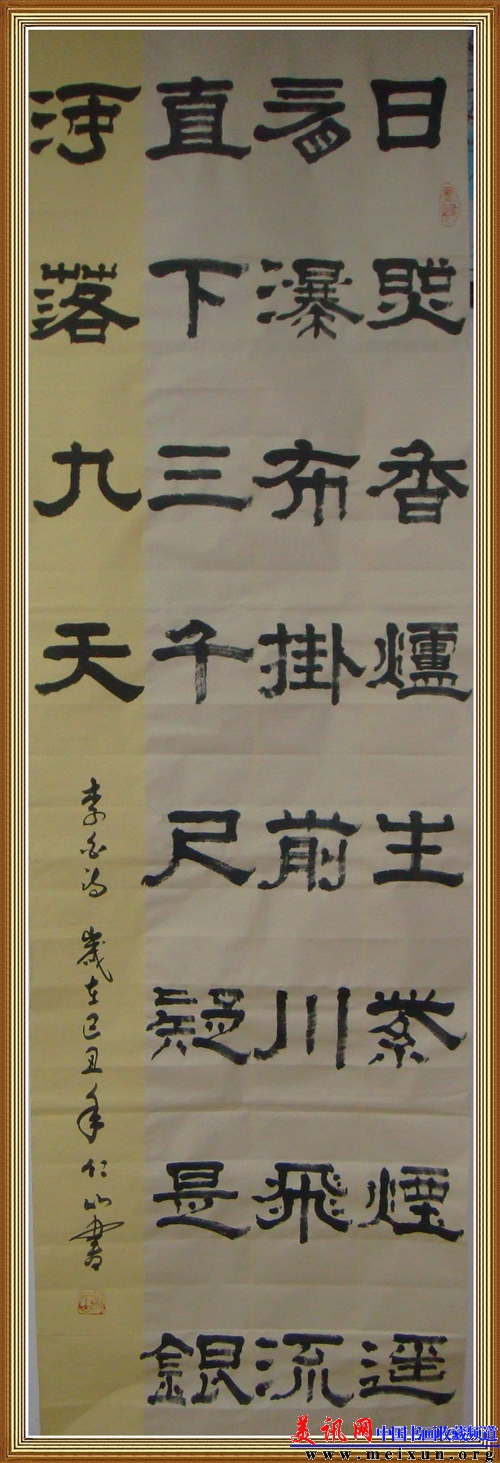 日照香爐生紫煙遥
看瀑布掛前川飛流
直下三千尺疑是銀
河落九天
李白詩 歲在己丑年仁山書
美讯网
中国书画收藏频道
www.meixun.org